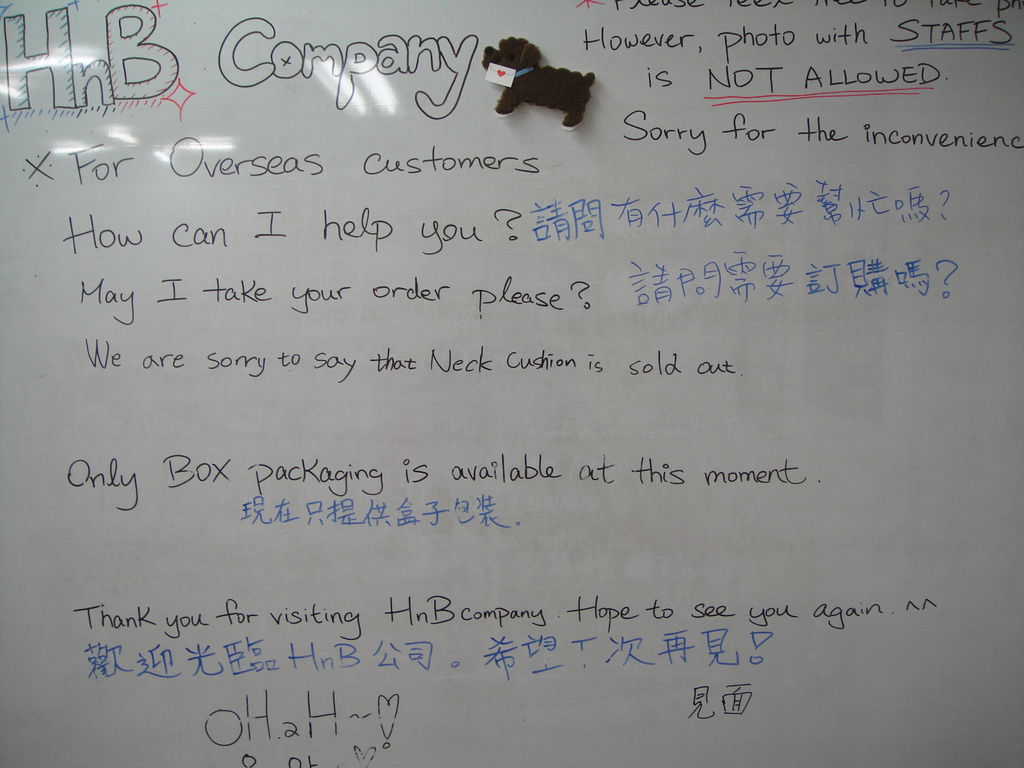 HnB Company
* Please feel free to take
However, photo with STAFFS
is NOT ALLOWED.
Sorry for the inconvenienc
※ For Overseas customers
How can I help you? 請問有什麼需要幫忙嗎?
May I take your order please? 請問需要訂購嗎?
We are sorry to say that Neck Cushion is sold out.
Only Box packaging is available at this moment.
現在只提供盒子包裝.
Thank you for visiting HnB company. Hope to see you again. ^^
歡迎光臨HnB公司。希望下次再見!
見面